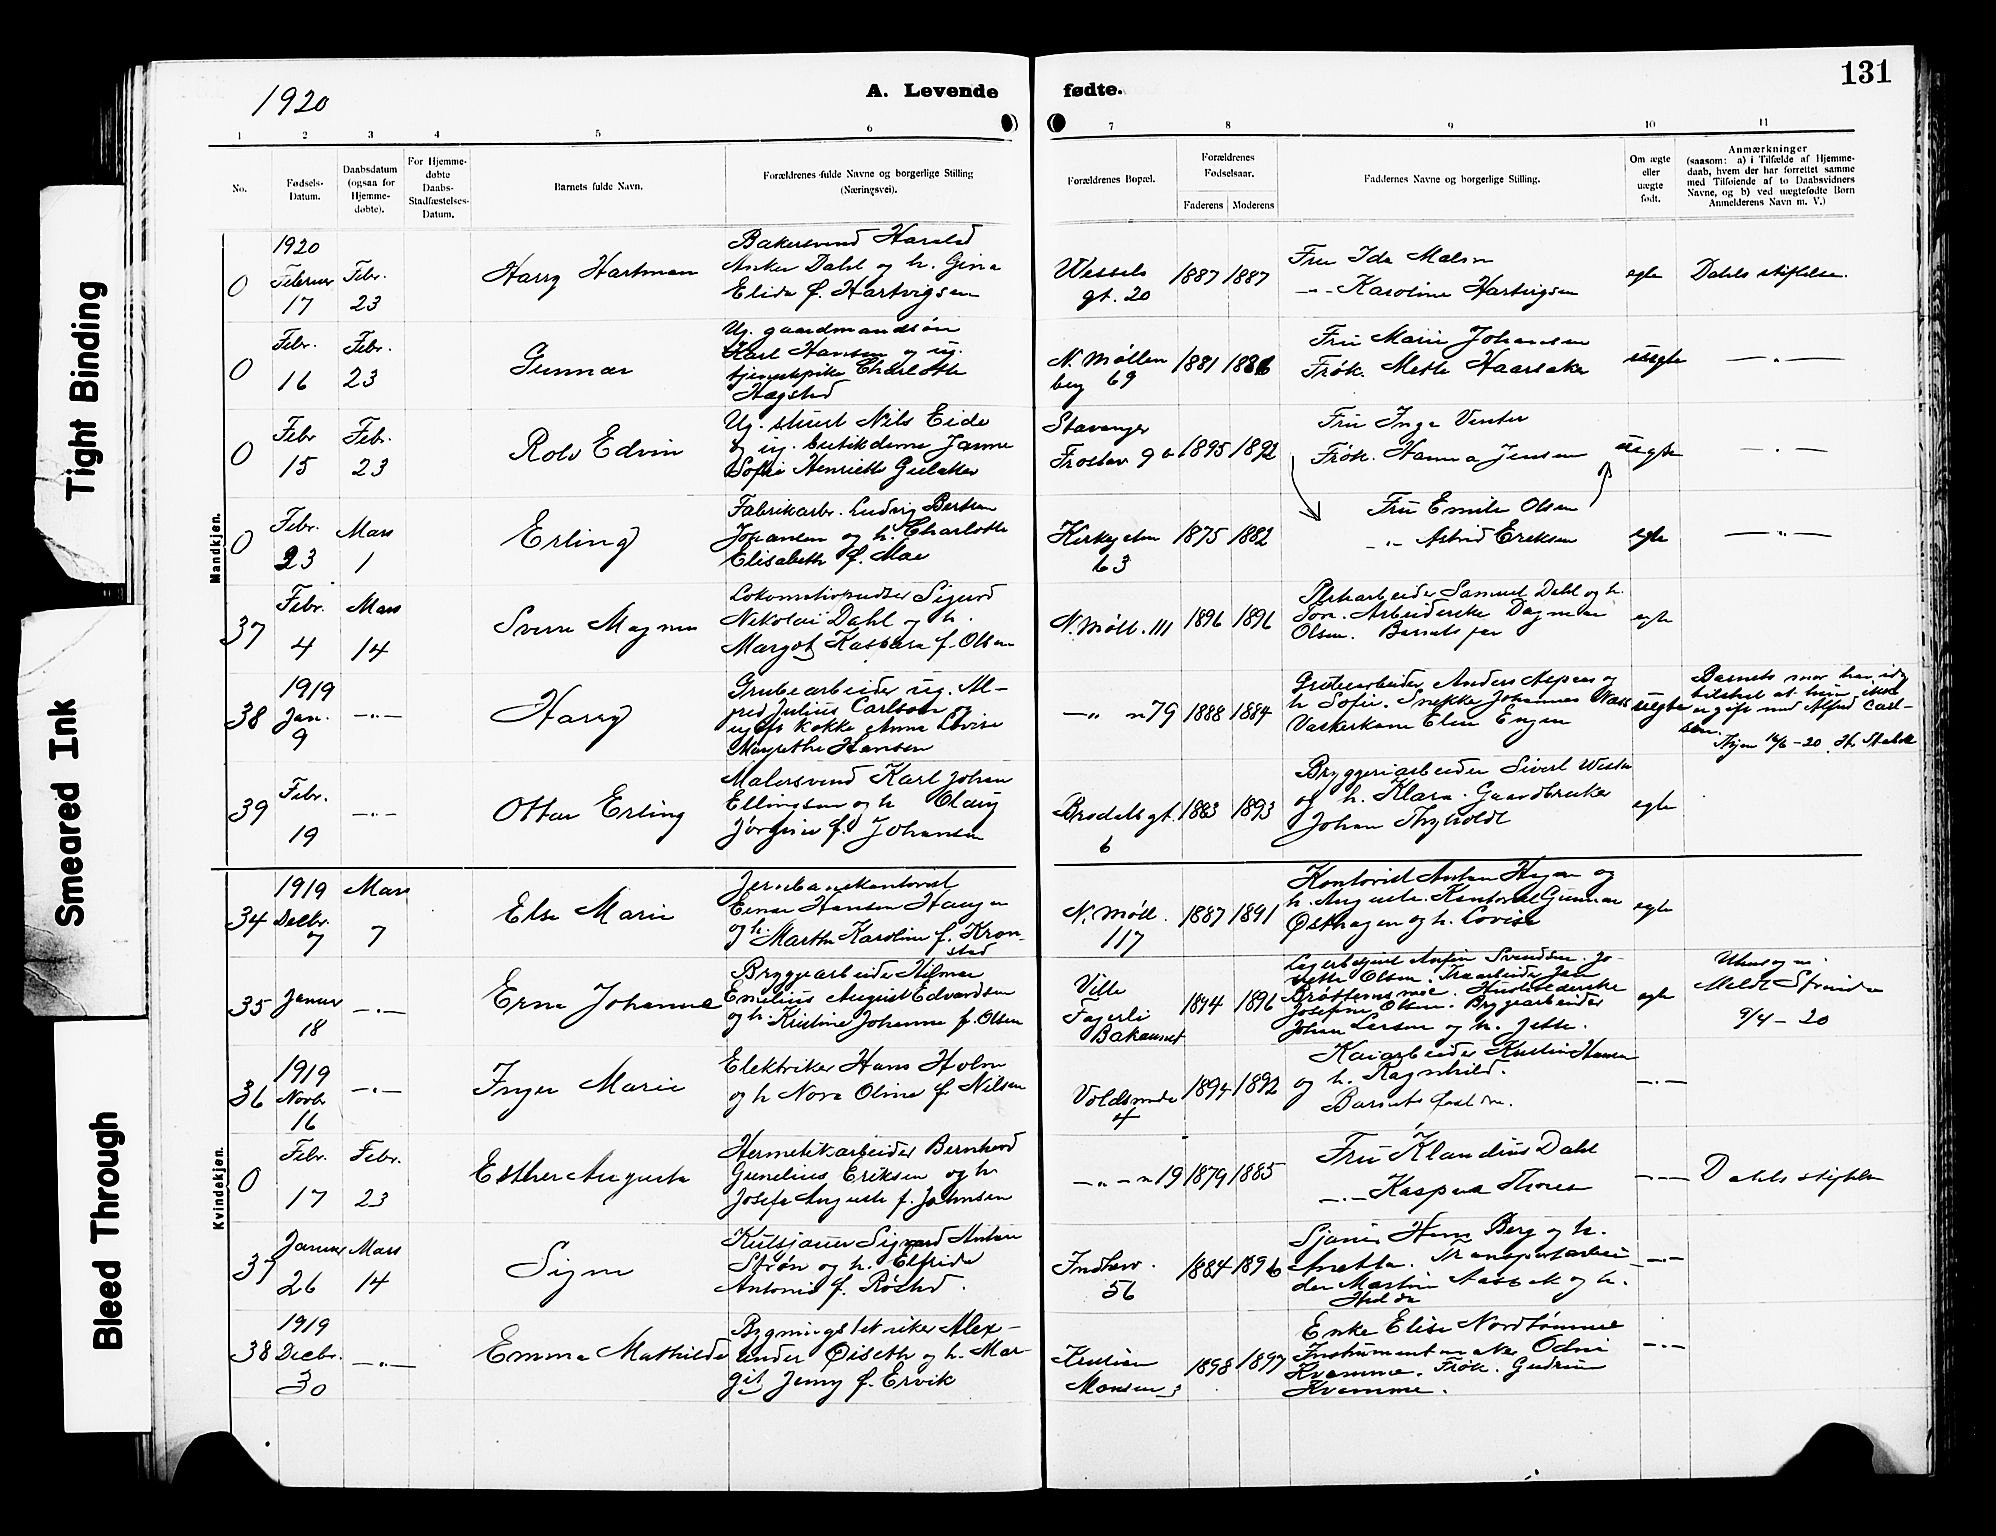 1920
A. Levende fødte.
131
1 2 3 4 5 6 7 8 9 10 11
No.
Fødsels-
Datum.
Daabsdatum
(ogsaa for
Hjemme-
døbte).
For Hjemme-
døbte
Daabs-
Stadfæstelses-
Datum.
Barnets fulde Navn.
Forældrenes fulde Navne og borgerlige Stilling
(Næringsvei).
Forældrenes Bopæl.
Forældrenes
Fødselsaar.
Faderens Moderens
Faddernes Navne og borgerlige Stilling.
Om ægte
eller
uægte
født.
Anmærkninger
(saasom: a) i Tilfælde af Hjemme-
daab, hvem der har forrettet samme
med Tilføiende af to Daabsvidners
Navne, og b) ved uægtefødte Børn
Anmelderens Navn m. V.)
Mandkjøn.
0
1920
Februar
17
Febr.
23
Harry Hartman
Bakersvend Harald
Anker Dahl og h. Gina
Elida f. Hartvigsen
Wessels
gt. 20
1887 1887
Fru Ida Malm
-"- Karoline Hartvigsen
egte
Dahls stiftelse.
0
Febr.
16
Febr.
23
Gunnar
Ug. gaardmandsøn
Karl Hansen og ug.
tjenestepike Charlotte
Hagstad
N. Møllen
berg 69
1881 1886
Fru Marie Johansen
Frøk. Mette Haarsaker
uegte
—"—
0
Febr
15
Febr.
23
Rolv Edvin
Ug. stuert Nils Eide
og ug. butikdame Janna
Sofie Henriette
Stavanger
Frostav 9a
1895 1892
Fru Inga Venter
Frøk. Hanna Jensen
uegte
—"—
0
Febr.
23
Mars
1
Erling
Fabrikarb. Ludvig Bertran
Johansen og h. Charlotte
Elisabeth f. Moe
Kirkegaten
63
1875 1882
Fru Emilie Olsen
-"- Astrid Eriksen
egte
—"—
37
Febr.
4
Mars
14
Sverre Magnus
Lokomotivpudser Sigurd
Nikolai Dahl og h.
Margot Kaspara f. Olsen
N. Møll. 111
1896 1896
Samuel Dahl og h.
Arbeiderske Dagmar
Olsen. Barnets far
egte
38
1919
Jan.
9
-"-
Harry
Grubearbeider ug. Al-
fred Julius Carlson og
ugift kokke Anna Lovise
Margrethe Hansen
—"— n 79
1888 1884
Grubearbeider Anders Aspaas og
h Sofie. Snekker Johannes
Vaskerkone Elen Engen
uegte
Barnets mor har idag
tilstaat at hun ikke
er gift med Alfred Carl-
sen.
16/6-20
39
Febr.
19
-"-
Ottar Erling
Malersvend Karl Johan
Ellingsen og h Olaug
Jørgine f. Johansen
Brodals gt.
6
1883 1893
Bryggeriarbeider Sivert
og h. Klara. Gaardbruker
Johan Thyholdt
egte
Kvindekjøn.
34
1919
Decbr.
7
Mars
7
Else Marie
Jernbanekontorist
Einar Hansen Haugen
og h. Martha Karoline f. Kron-
stad
N. Møll.
117
1887 1891
Kontorist Anton Hagen og
h. Augusta. Kontorist Gunnar
Østhagen og h. Lovise
egte
35
Januar
18
-"-
Erna Johanne
Bryggearbeider Hilmar
Emilius August Edvardsen
og h. Kristine Johanne f. Olsen
Villa
Fagerli
Bakaunet
1894 1896
Svendsen. Jo-
Olsen. Træarbeider Jan
Brøttemsmoe. Husholderske
Josefine Olsen. Bryggearbeider
Johan Larsen og h. Jette.
egte
Meldt Strinda
9/4-20
36
1919
Novbr
16
-"-
Inger Marie
Elektriker Hans Holm
og h Nora Oline f Nilsen
Voldsminde
4
1894 1892
Kaiarbeider Kristian Hansen
og h. Ragnhild.
Barnets foreldre.
-"-
0
Febr.
17
Febr.
23
Esther Augusta
Hermetikarbeider Bernhard
Gunelius Eriksen og h
Josefa Augusta f. Johnsen
-"- -"- 19
1879 1885
Fru Klaudius Dahl
-"- Kaspara Thoresen
-"-
Dahls stiftelse
37
Januar
26
Mars
14
Signe
Sigvard Anton
Strøm og h. Elfrida
Antonie f. Røstad.
Indherv.
56
1884 1896
Sjauer Hans Berg og h.
Anetta. Transportarbei-
der Martin og h.
Hulda
-"-
38
1919
Decbr.
30
-"-
Emma Mathilde
Bygningstekniker Alex-
ander Øiseth og h. Mar-
git Jenny f. Ervik
Kristian
Monsen 3
1898 1897
Enke Elise Nordtømme
Instrumentmaker Odin
Kvamme. Frøk. Gudrun
Kvamme.
-"-
Tight Binding
Smeared Ink
Bleed Through